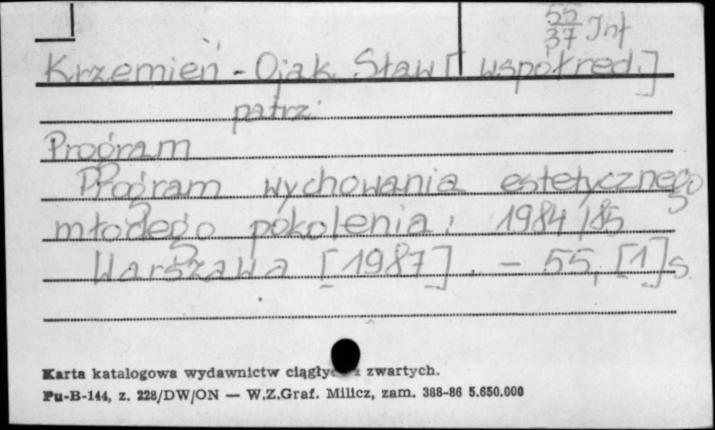 55
37 Inf
Krzemień-Ojak Sław [współred.]
patrz:
Program
Program wychowania estetycznego
młodego pokolenia: 1984/85
Warszawa [1987]. - 55, [1] s
Karta katalogowa wydawnictw ciągłych i zwartych.
Pu-B-144, z. 228/DW/ON — W.Z.Graf. Milicz, zam. 388-86 5.650.000